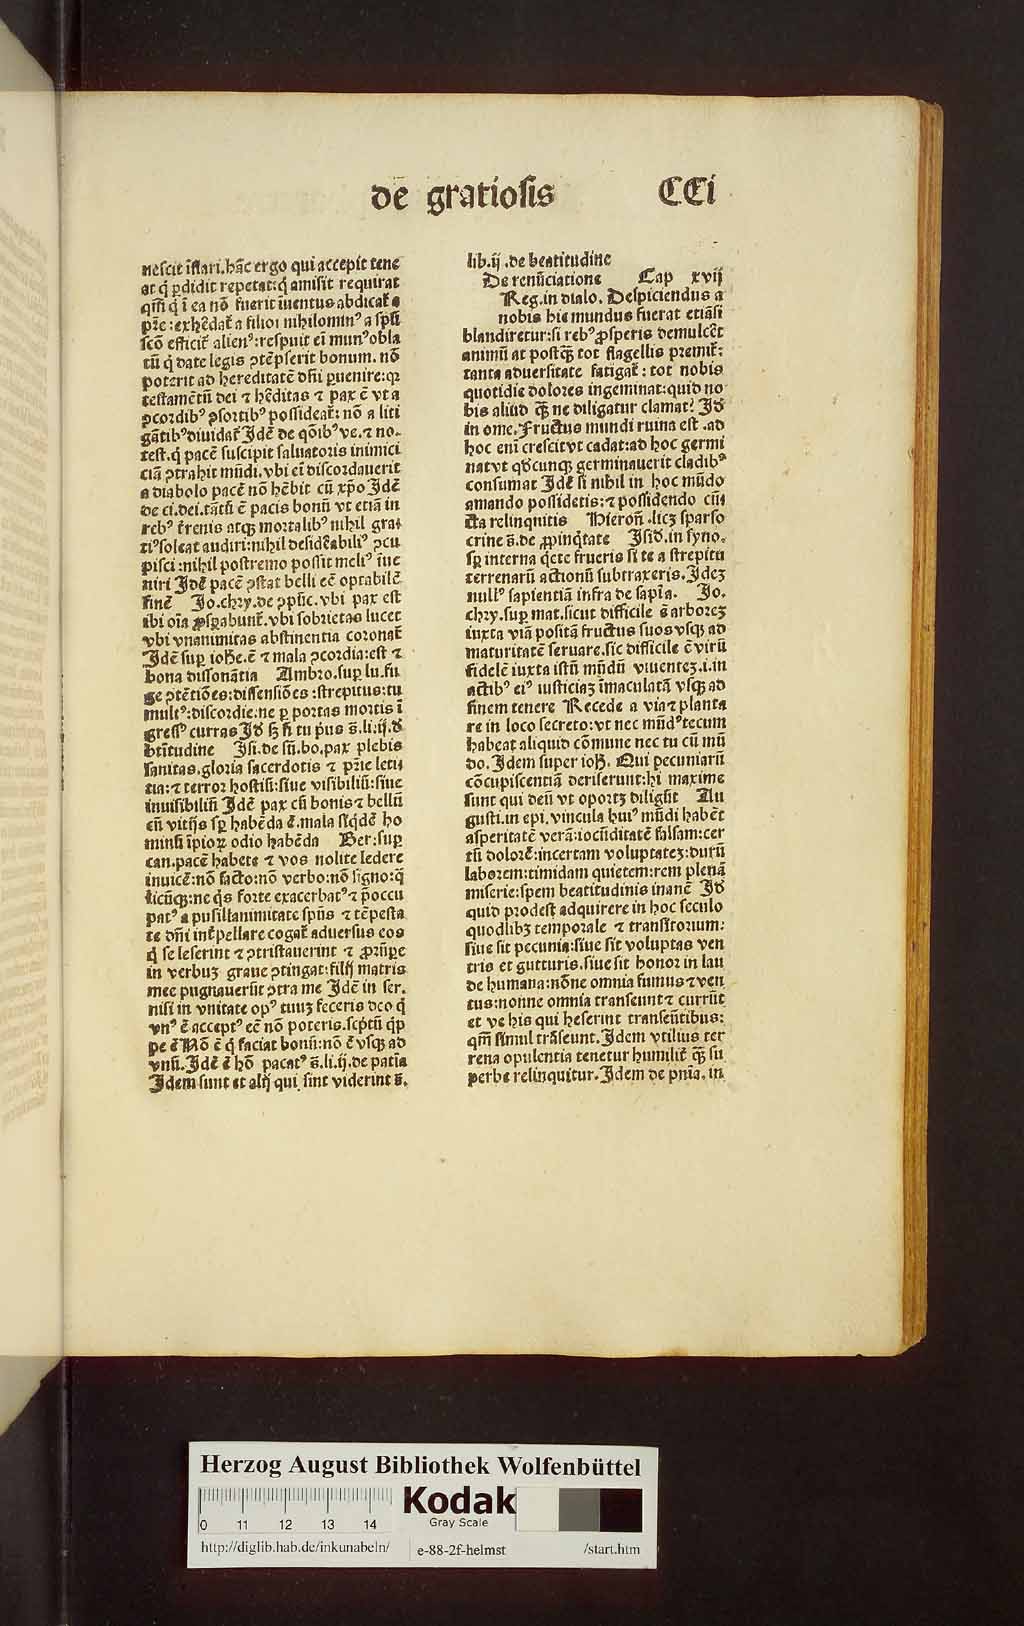 de gratiosis CCi
nescit īflari. hāc ergo qui accepit tene
at q̄ ꝑdidit repetat: q̄ amisit requirat
qm̄ q̄ ī ea nō fuerit iuentus abdicat᷑ a
pr̄e: exhēdat᷑ a filio: nihilomin⁹ a spū
scō efficit᷑ alien⁹: respuit eī mun⁹ obla
tū q̄ date legis ꝯtēpserit bonum. nō
poterit ad hereditatē dn̄i ꝑuenire: qꝛ
testamētū dei ⁊ hēditas ⁊ pax ē vt a
ꝯcordib⁹ ꝯsortib⁹ possideat᷑: nō a liti
gātib⁹ diuidat᷑ Idē de q̄oīb⁹ ve. ⁊ no.
test. q̄ pacē suscipit saluatoris inimici
ciā ꝯtrahit mūdi. vbi eī discordauerit
a diabolo pacē nō hēbit cū xp̄o Idē
de ci. dei. tātū ē pacis bonū vt etiā in
reb⁹ t᷑renis atqꝫ mortalib⁹ nihil gra-
ti⁹ soleat audiri: nihil desidēabili⁹ ꝯcu
pisci: nihil postremo possit meli⁹ īue
niri Idē pacē ꝯstat belli eē optabilē
finē Io. chry. de ꝯpūc. vbi pax est
ibi oīa ꝓsꝑabunt᷑. vbi sobrietas lucet
vbi vnanimitas abstinentia coronat᷑
Idē suꝑ iohē. ē ⁊ mala ꝯcordia: est ⁊
bona dissonātia Ambro. suꝑ lu. fu
ge ꝯtētiōes: dissensiōes: strepitus: tu
mult⁹: discordie: ne ꝑ portas mortis ī
gress⁹ curras Id̄ ꝫ si tu pri⁹ s̄. li. ij. d̄
btītudine Isi. de sū. bo. pax plebis
sanitas. gloria sacerdotis ⁊ pr̄ie leti
tia: ⁊ terror hostiū: siue visibiliū: siue
inuisibiliū Idē pax cū bonis ⁊ bellū
cū vitijs sꝑ habēda ē. mala siq̄dē ho
minū īpioꝝ odio habēda Ber: suꝑ
can. pacē habete ⁊ vos nolite ledere
inuicē: nō facto: nō verbo: nō signo: q̄
licūqꝫ: ne q̄s forte exacerbat⁹ ⁊ p̄occu
pat⁹ a pusillanimitate sp̄ns ⁊ tēpesta
te dn̄i int᷑pellare cogat᷑ aduersus eos
q̄ se leserint ⁊ ꝯtristauerint ⁊ ꝓrūꝑe
in verbuꝫ graue ꝯtingat: filij matris
mee pugnauerūt ꝯtra me Idē in ser.
nisi in vnitate op⁹ tuuꝫ feceris deo q̄
vn⁹ ē accept⁹ eē nō poteris. scp̄tū q̄p
pe ē Nō ē q̄ faciat bonū: nō ē vsqꝫ ad
vnū. Idē ē hō pacat⁹ s̄. li. ij. de patīa
Idem sunt et alij qui sint viderint s̄.
lib. ij. de beatitudine
De renūciatione Cap xvij
Reg. in dialo. Despiciendus a
nobis hic mundus fuerat etiāsi
blandiretur: si reb⁹ ꝓsperis demulcēt
animū at postqꝫ tot flagellis premit᷑:
tanta aduersitate fatigat᷑: tot nobis
quotidie dolores ingeminat: quid no
bis aliud qꝫ ne diligatur clamat? Id̄
in ome. Fructus mundi ruina est. ad
hoc eni crescit vt cadat: ad hoc germi
nat vt qd̄cunqꝫ germinauerit cladib⁹
consumat Idē si nihil in hoc mūdo
amando possidetis: ⁊ possidendo cūi
cta relinquitis Hieron̄. licꝫ sparso
crine s̄. de ꝓpinq̄tate Isid̄. in syno.
sꝑ interna q̄ete frueris si te a strepitu
terrenarū actionū subtraxeris. Ideꝫ
null⁹ sapientiā infra de sap̄ia. Io.
chry. suꝑ mat. sicut difficile ē arboreꝫ
iuxta viā positā fructus suos vsqꝫ ad
maturitatē seruare. sic difficile ē virū
fidelē iuxta istū mūdū viuenteꝫ. i. in
actib⁹ ei⁹ iusticiaꝫ īmaculatā vsqꝫ ad
finem tenere Recede a via ⁊ planta
re in loco secreto: vt nec mūd⁹ tecum
habeat aliquid cōmune nec tu cū mū
do. Idem super ioh̄. Qui pecuniarū
cōcupiscentiā deriserunt: hi maxime
sunt qui deū vt oportꝫ diligūt Au
gusti. in epi. vincula hui⁹ mūdi habēt
asperitatē verā: iocūditatē falsam: cer
tū dolorē: incertam voluptateꝫ: durū
laborem: timidam quietem: rem plenā
miserie: spem beatitudinis inanē Id̄
quid prodest adquirere in hoc seculo
quodlibꝫ temporale ⁊ transitorium:
siue sit pecunia: siue sit voluptas ven
tris et gutturis. siue sit honor in lau
de humana: nōne omnia fumus ⁊ ven
tus: nonne omnia transeunt ⁊ currūt
et ve his qui heserint transeūtibus:
qm̄ simul trāseunt. Idem vtilius ter
rena opulentia tenetur humilit᷑ qꝫ su
perbe relinquitur. Idem de pn̄ia. in
Herzog August Bibliothek Wolfenbüttel
Kodak
Gray Scale
0 11 12 13 14
http://diglib.hab.de/inkunabeln/ e-88-2f-helmst /start.htm